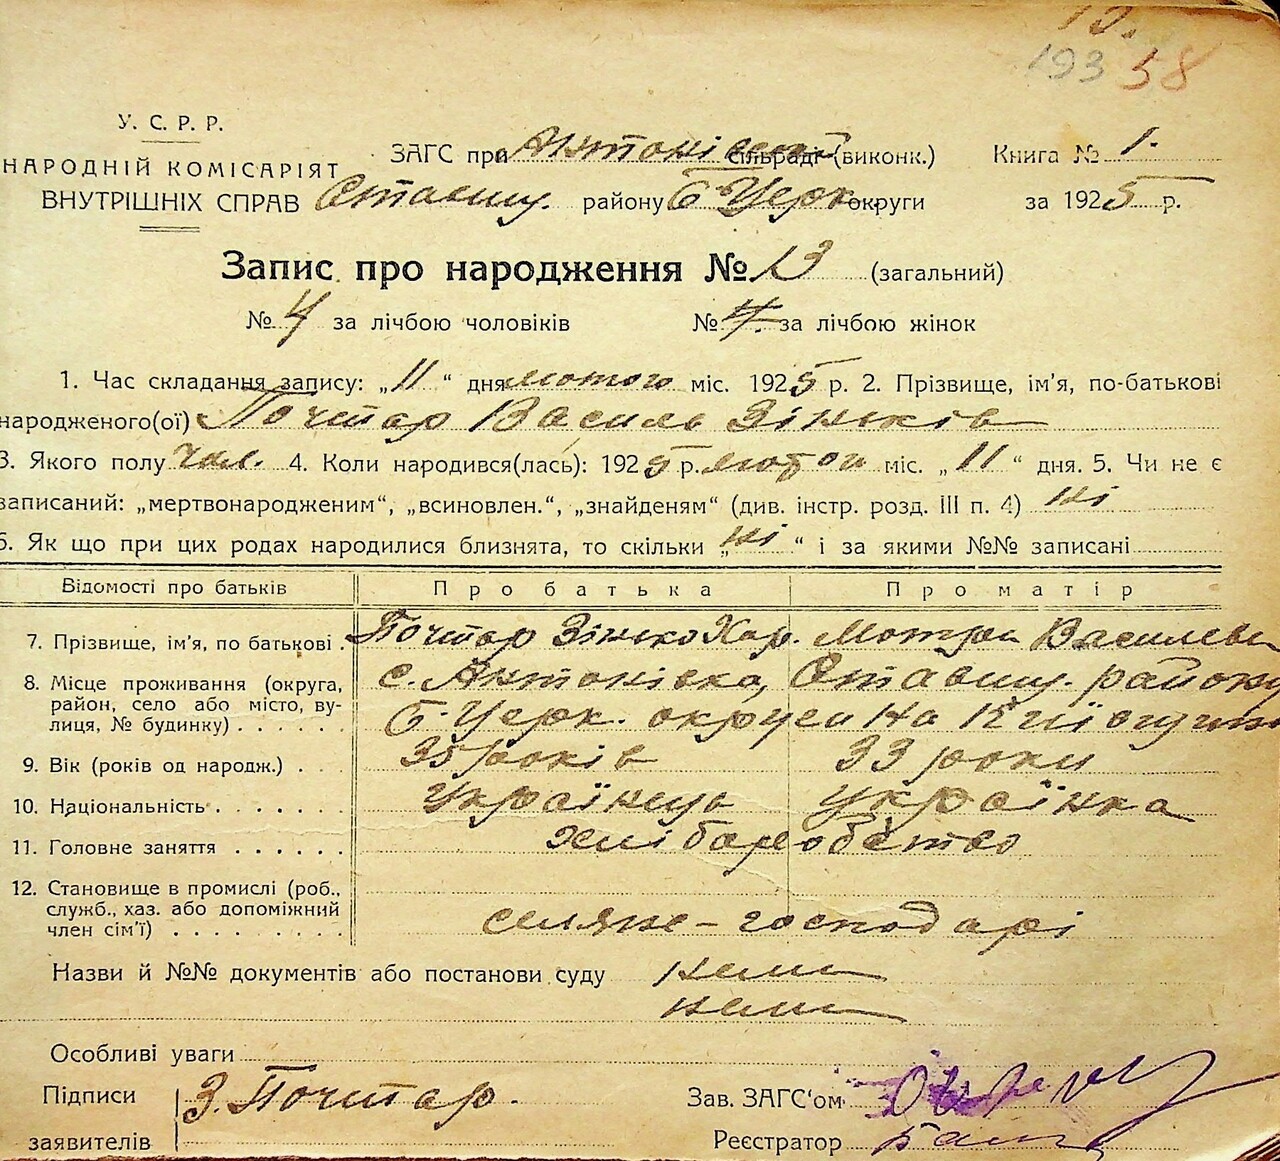 193 58
У. С. Р. Р.
НАРОДНІЙ КОМІСАРІЯТ
ВНУТРІШНІХ СПРАВ
ЗАГС при Антонівськ. сільраді (виконк.) Книга № 1.
Ставищ. району Б Церк. округи за 1925 р.
Запис про народження № 13 (загальний)
№ 4 за лічбою чоловіків № за лічбою жінок
1. Час складання запису: „11“ дня лютого міс. 1925 р. 2. Прізвище, ім'я, по-батькові
народженого(ої) Почтар Василь Зіньків
3. Якого полу чол. 4. Коли народився(лась): 1925 р. лютого міс. „11“ дня. 5. Чи не є
записаний: „мертвонародженим“, „всиновлен.“, „знайденям“ (див. інстр. розд. III п. 4) ні
6. Як що при цих родах народилися близнята, то скільки „ні“ і за якими №№ записані
Відомості про батьків Про батька Про матір
7. Прізвище, ім'я, по батькові . Почтар Зінько Хар. Мотря Василева
8. Місце проживання (округа, с. Антонівка, Ставищ. району
район, село або місто, ву-
лиця, № будинку) . . . . . . Б. Церк. округи на Київщині
9. Вік (років од народж.) . . . 35 років 33 роки
10. Національність . . . . . . українець українка
11. Головне заняття . . . . . . хліборобство
12. Становище в промислі (роб.,
служб., хаз. або допоміжний
член сім'ї) . . . . . . . . . селяне - господарі
Назви й №№ документів або постанови суду нема
нема
Особливі уваги
Підписи
заявителів З. Почтар.
Зав. ЗАГС'ом
Реєстратор